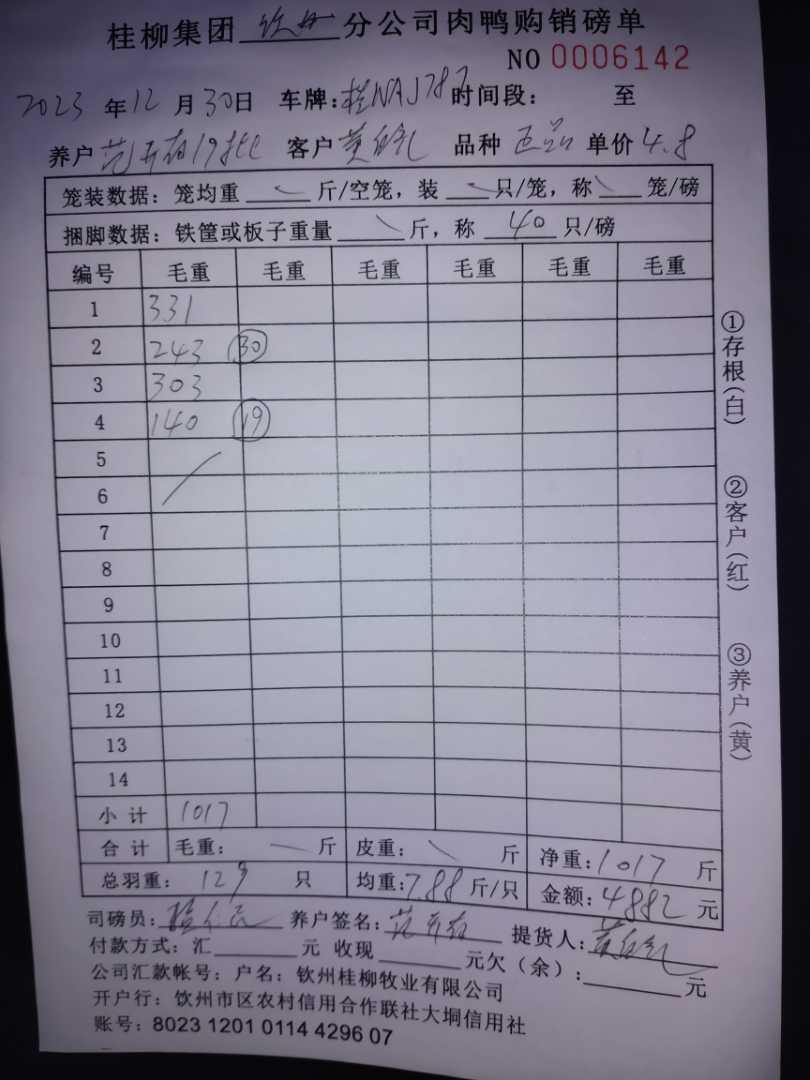 桂柳集团 钦州 分公司肉鸭购销磅单
NO 0006142
2023 年 12 月 30 日 车牌：桂NAJ787 时间段： 至
养户 19批 客户 黄 品种 正品 单价 4.8
笼装数据：笼均重 斤/空笼，装 只/笼，称 笼/磅
捆脚数据：铁筐或板子重量 斤，称 40 只/磅
编号 毛重 毛重 毛重 毛重 毛重 毛重
1 331
2 243 30
3 303
4 140 19
5
6
7
8
9
10
11
12
13
14
小计 1017
合计 毛重： 斤 皮重： 斤 净重：1017 斤
总羽重： 129 只 均重：7.88 斤/只 金额：4882 元
司磅员： 养户签名： 提货人：黄
付款方式：汇 元 收现 元欠（余）： 元
公司汇款帐号：户名：钦州桂柳牧业有限公司
开户行：饮州市区农村信用合作联社大垌信用社
账号：8023 1201 0114 4296 07
①存根（白）
②客户（红）
③养户（黄）